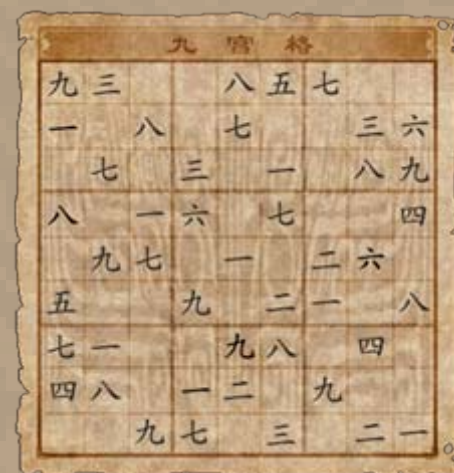 九宫格
九三 八五七
一 八 七 三六
七 三 一 八九
八 一六 七 四
九七 一 二六
五 九 二一 八
七一 九八 四
四八 一二 九
九七 三 二一